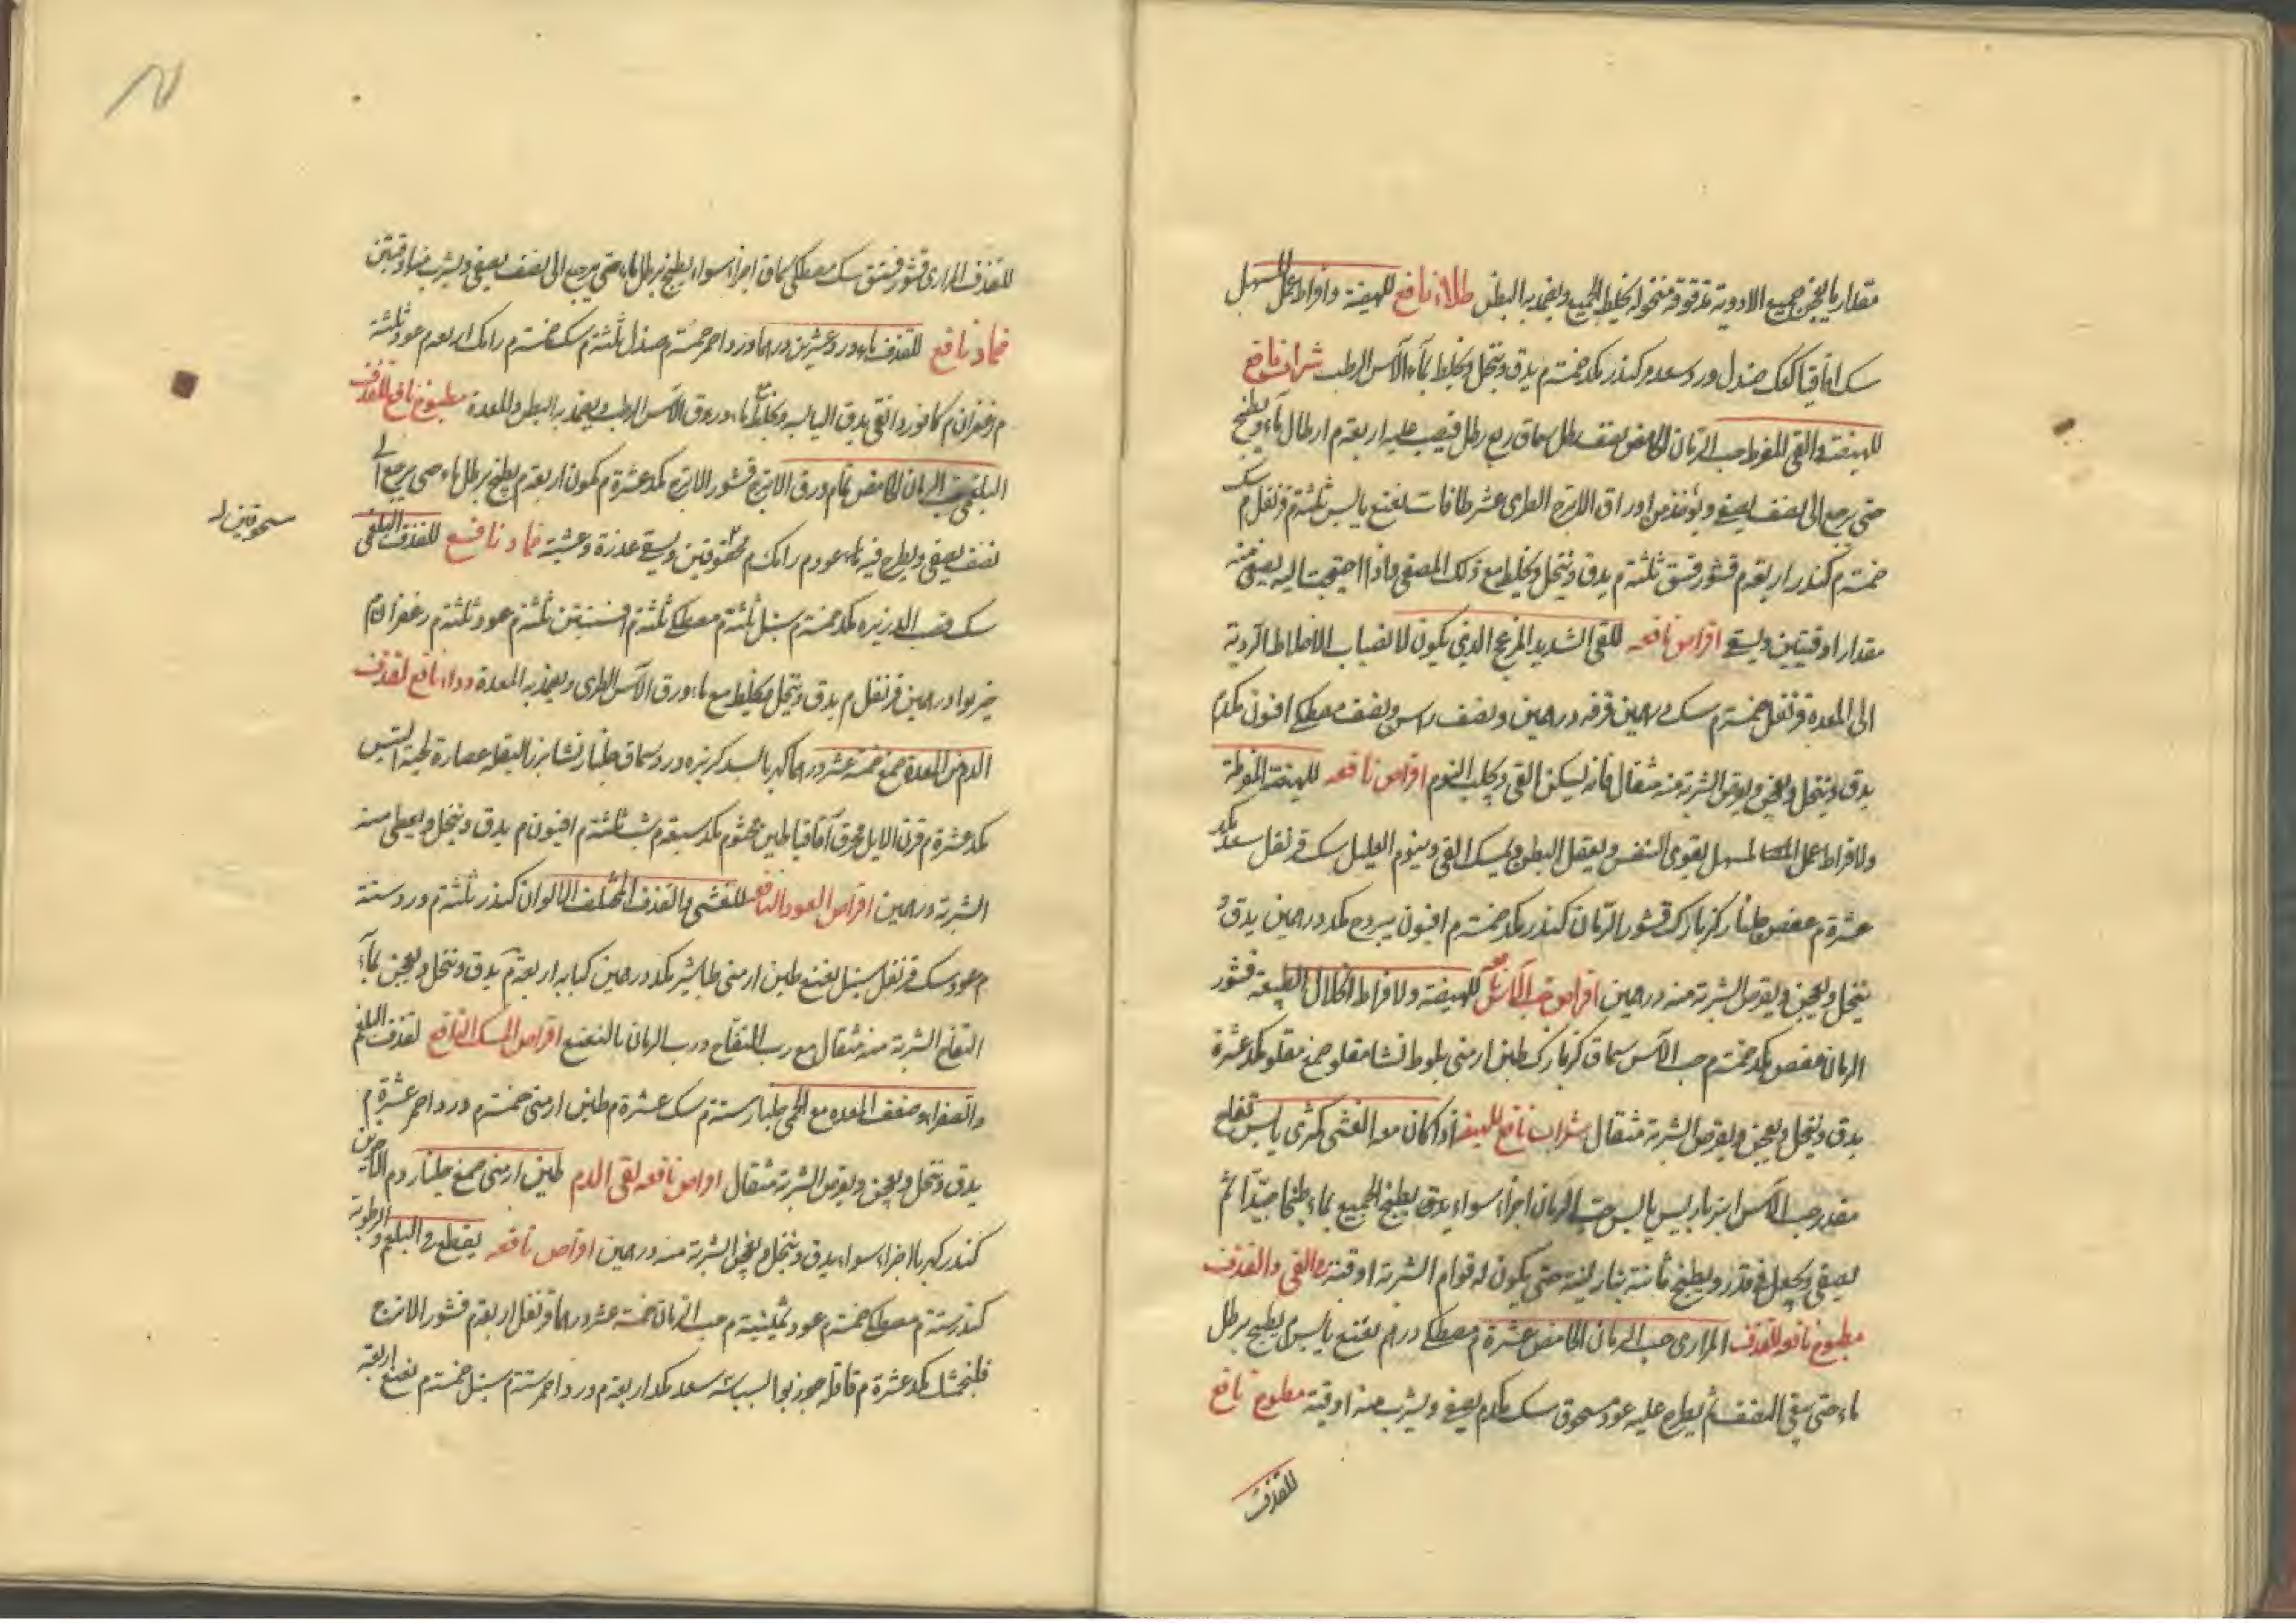 مقدار ما يعجن جميع الادوية مدقوقة منخولة يخلط الجميع ويضمد به البطن طلاء نافع للهيضة وافراط عمل المسهل
سك اقاقيا كعك صندل ورد سعد م كندر مكد خمسة م يدق وينخل ويخلط بماء الآس الرطب شراب نافع
للهيضة والقي المفرط حب الرمان الحامض نصف رطل سماق ربع رطل فيصب عليه اربعة م ارطال ماء ويطبخ
حتى يرجع الى نصف يصفى ويؤخذ من اوراق الاترج الطرى عشر طاقات نعنع يابس ثلثة م قرنفل م سك
خمسة م كندر اربعة م قشور فستق ثلثة م يدق وينخل ويخلط مع ذلك المصفى واذا احتيجت اليه يصفى منه
مقدار اوقيتين ويسقى اقراص نافعه للقى الشديد المزعج الذى يكون لانصباب الاخلاط الردية
الى المعدة قرنفل خمسة م سك درهمين قرفه درهمين ونصف مصطكى افيون مكد م
يدق وينخل ويعجن ويقرص الشربة منه مثقال فانه يسكن القى ويجلب النوم اقراص نافعه للهيضة المفرطة
ولافراط عمل المسهل يقوى النفس ويعقل البطن ويمسك القى وينوم العليل سك قرنفل سعد مكد
عشرة م عفص جلنار كزمازك قشور الرمان كندر مكد خمسة م افيون يبروح مكد درهمين يدق و
ينخل ويعجن ويقرص الشربة منه درهمين اقراص حب الآس نافع للهيضة ولافراط انحلال الطبيعة قشور
الرمان عفص مكد خمسة م حب الآس سماق كزمازك طين ارمنى بلوط نشا مقلو صمغ مقلو مكد عشرة
يدق وينخل ويعجن ويقرص الشربة مثقال شراب نافع للهيضة اذا كان معه الغشى كمثرى يابس تفاح
مقدد حب الآس انبرباريس يابس حب الرمان اجزاء سواء يدق يطبخ الجميع بماء طبخا جيدا ثم
يصفى ويجعل فى قدر ويطبخ ثانية بنار لينة حتى يكون له قوام الشربة اوقية للقى والقذف
مطبوخ نافع للقذف المرارى حب الرمان الحامض عشرة م مصطكى درهم نعنع يابس م يطبخ برطل
ماء حتى يبقى النصف ثم يطرح عليه عود مسحوق سك مكد م يصفى ويشرب منه اوقية مطبوخ نافع
للقذف
للقذف المرارى قشور فستق سك مصطكى سماق اجزاء سواء يطبخ برطل ماء حتى يرجع الى نصف يصفى ويشرب منه اوقيتين
ضماد نافع للقذف ماء ورد عشرين درهما ورد احمر خمسة م صندل ثلثة م سك خمسة م رامك اربعة م عود ثلثة
م زعفران م كافور دانقى يدق اليابسه ويخلط مع ماء ورق الآس الرطب ويضمد به البطن والمعدة مطبوخ نافع للقذف
البلغمى حب الرمان الحامض نمام ورق الاترج قشور الاترج مكد عشرة م كمون اربعة م يطبخ برطل ماء حتى يرجع الى
نصف يصفى ويطرح فيه ماء عود م رامك م مسحوقتين ويسقى غدوة وعشية ضماد نافع للقذف البلغمى
مسحوقتين
سك قصب الذريرة مكد خمسة م سنبل ثلثة م مصطكى ثلثة م افسنتين ثلثة م عود ثلثة م زعفران م
خير بوا درهمين قرنفل م يدق وينخل ويخلط مع ماء ورق الآس الطرى ويضمد به المعدة دواء نافع لقذف
الدم من المعدة صمغ خمسة عشر درهما كهربا بسد كزبره ورد سماق جلنار نشا بزر البقلة عصارة لحية التيس
مكد عشرة م قرن الايل محرق اقاقيا طين مختوم مكد سبعة م شب ثلثة م افيون م يدق وينخل ويعطى منه
الشربة درهمين اقراص العود النافع للغشى والقذف المختلف الالوان كندر ثلثة م ورد ستة
م عود سك قرنفل سنبل نعنع طين ارمنى طباشير مكد درهمين كبابه اربعة م يدق وينخل ويعجن بماء
التفاح الشربة منه مثقال مع رب التفاح ورب الرمان بالنعنع اقراص المسك النافع لقذف البلغم
والصفراء وضعف المعده مع الحمى جلنار ستة م سك عشرة م طين ارمنى خمسة م ورد احمر عشرة م
يدق وينخل ويعجن ويقرص الشربة مثقال اقراص نافعه لقى الدم طين ارمنى صمغ جلنار دم الاخوين
كندر كهربا اجزاء سواء يدق وينخل ويعجن الشربة منه درهمين اقراص نافعه يقطع قى البلغم والرطوبة
كندر ستة م مصطكى خمسة م عود ثمينة م حب الرمان خمسة عشر درهما قرنفل اربعة م قشور الاترج
فلنجمشك مكد عشرة م قاقلة جوزبوا بسباسه سعد مكد اربعة م ورد احمر ستة م سنبل خمسة م نعنع اربعة